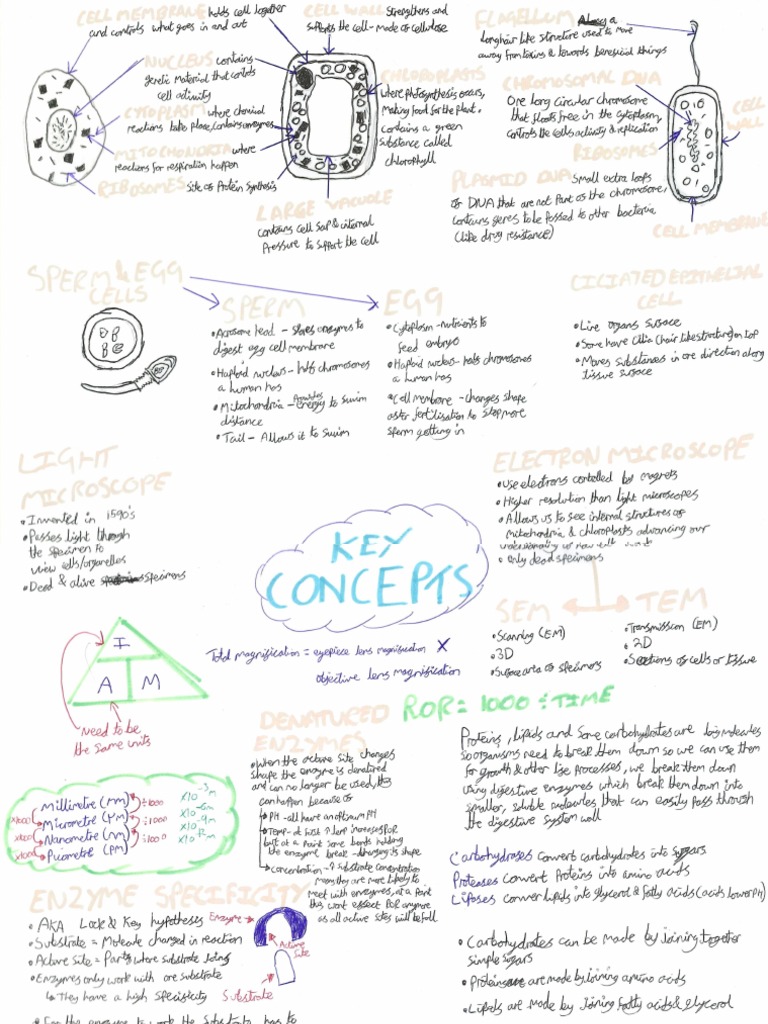 CELL MEMBRANE holds cell together
and controls what goes in and out
NUCLEUS contains
genetic material that controls
cell activity
CYTOPLASM where chemical
reactions take place, contains enzymes
MITOCHONDRIA where
reactions for respiration happen
RIBOSOMES site of Protein Synthesis
CELL WALL strengthens and
supports the cell - made of cellulose
CHLOROPLASTS
where photosynthesis occurs,
making food for the plant.
contains a green
substance called
chlorophyll
LARGE VACUOLE
contains cell sap & internal
pressure to support the cell
FLAGELLUM a
long hair like structure used to move
away from toxins & towards beneficial things
CHROMOSOMAL DNA
One long circular chromosome
that floats free in the cytoplasm,
controls the cells activity & replication
RIBOSOMES
CELL
WALL
PLASMID DNA small extra loops
of DNA that are not part of the chromosome,
contains genes to be passed to other bacteria
(like drug resistance)
CELL MEMBRANE
SPERM & EGG
CELLS
SPERM
• Acrosome head - stores enzymes to
digest egg cell membrane
• Haploid nucleus - half chromosomes
a human has
• Mitochondria - Provides energy to swim
distance
• Tail - Allows it to swim
EGG
• Cytoplasm - nutrients to
feed embryo
• Haploid nucleus - half chromosomes
a human has
• Cell membrane - changes shape
after fertilisation to stop more
sperm getting in
CILIATED EPITHELIAL
CELL
• Line organs surface
• Some have Cilia (hair like structure) on top
• Moves substances in one direction along
tissue surface
LIGHT
MICROSCOPE
• Invented in 1590's
• Passes light through
the specimen to
view cells/organelles
• Dead & alive specimens
ELECTRON MICROSCOPE
• Use electrons controlled by magnets
• Higher resolution than light microscopes
• Allows us to see internal structures of
mitochondria & chloroplasts advancing our
understanding of how cell
• Only dead specimens
SEM
• Scanning (EM)
• 3D
• Surface area of specimens
TEM
• Transmission (EM)
• 2D
• Sections of cells or tissue
KEY
CONCEPTS
Total magnification = eyepiece lens magnification X
objective lens magnification
I
A M
Need to be
the same units
ROR = 1000 ÷ TIME
Millimetre (mm) ÷1000 x10-3m
x1000 Micrometre (μm) ÷1000 x10-6m
x1000 Nanometre (nm) ÷1000 x10-9m
x1000 Picometre (pm) x10-12m
DENATURED
ENZYMES
• When the active site changes
shape the enzyme is denatured
and can no longer be used, this
can happen because of
PH - all have an optimum pH
Temp - at first ↑ temp increases ROR
but at a point some bonds holding
the enzyme break - changing its shape
concentration - ↑ substrate concentration
means they are more likely to
meet with enzymes, at a point
this wont effect ROR anymore
as all active sites will be full
Proteins, lipids and some carbohydrates are big molecules
so organisms need to break them down so we can use them
for growth & other life processes, we break them down
using digestive enzymes which break them down into
smaller, soluble molecules that can easily pass through
the digestive system wall
Carbohydrases convert carbohydrates into sugars
Proteases convert proteins into amino acids
Lipases convert lipids into glycerol & fatty acids (acids lower pH)
• Carbohydrates can be made by joining together
simple sugars
• Proteins are made by joining amino acids
• Lipids are made by joining fatty acids & glycerol
ENZYME SPECIFICITY
• AKA Lock & Key hypotheses
• Substrate = Molecule changed in reaction
• Active site = Parts where substrate joins
• Enzymes only work with one substrate
↳ They have a high specificity
• For the enzyme to work the substrate has to
Enzyme
Active
Site
Substrate